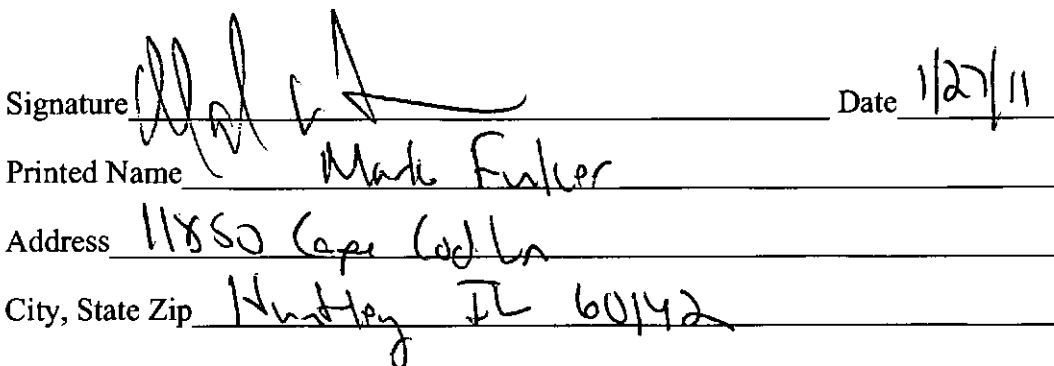 Signature Date 1/27/11
Printed Name Mark
Address 11850 Cape Cod Ln
City, State Zip Huntley IL 60142